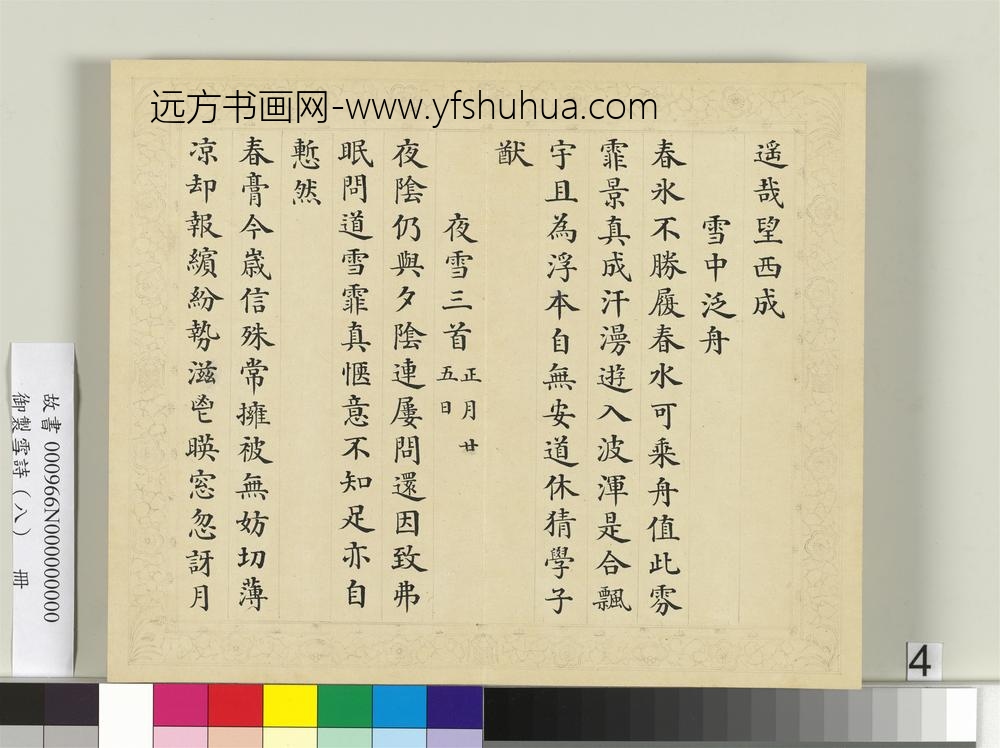 远方书画网-www.yfshuhua.com
遥哉望西成
雪中泛舟
春氷不勝履春水可乘舟值此雰
霏景真成汗漫遊入波渾是合飄
宇且為浮本自無安道休猜學子
猷
夜雪三首 正月廿五日
夜陰仍與夕陰連屢問還因致弗
眠問道雪霏真愜意不知足亦自
慙然
春膏今嵗信殊常擁被無妨切薄
凉却報繽紛勢滋㔯暎窓忽訝月
故書 000966N000000000
御製雪詩（八） 冊
4